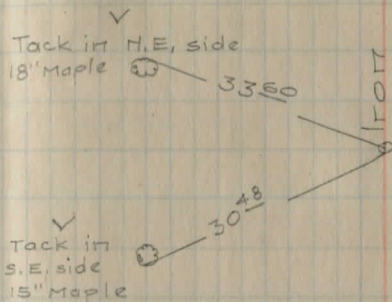 Tack in N.E. side
18" Maple
33 60
Iron
30 48
Tack in
S.E. side
15" Maple